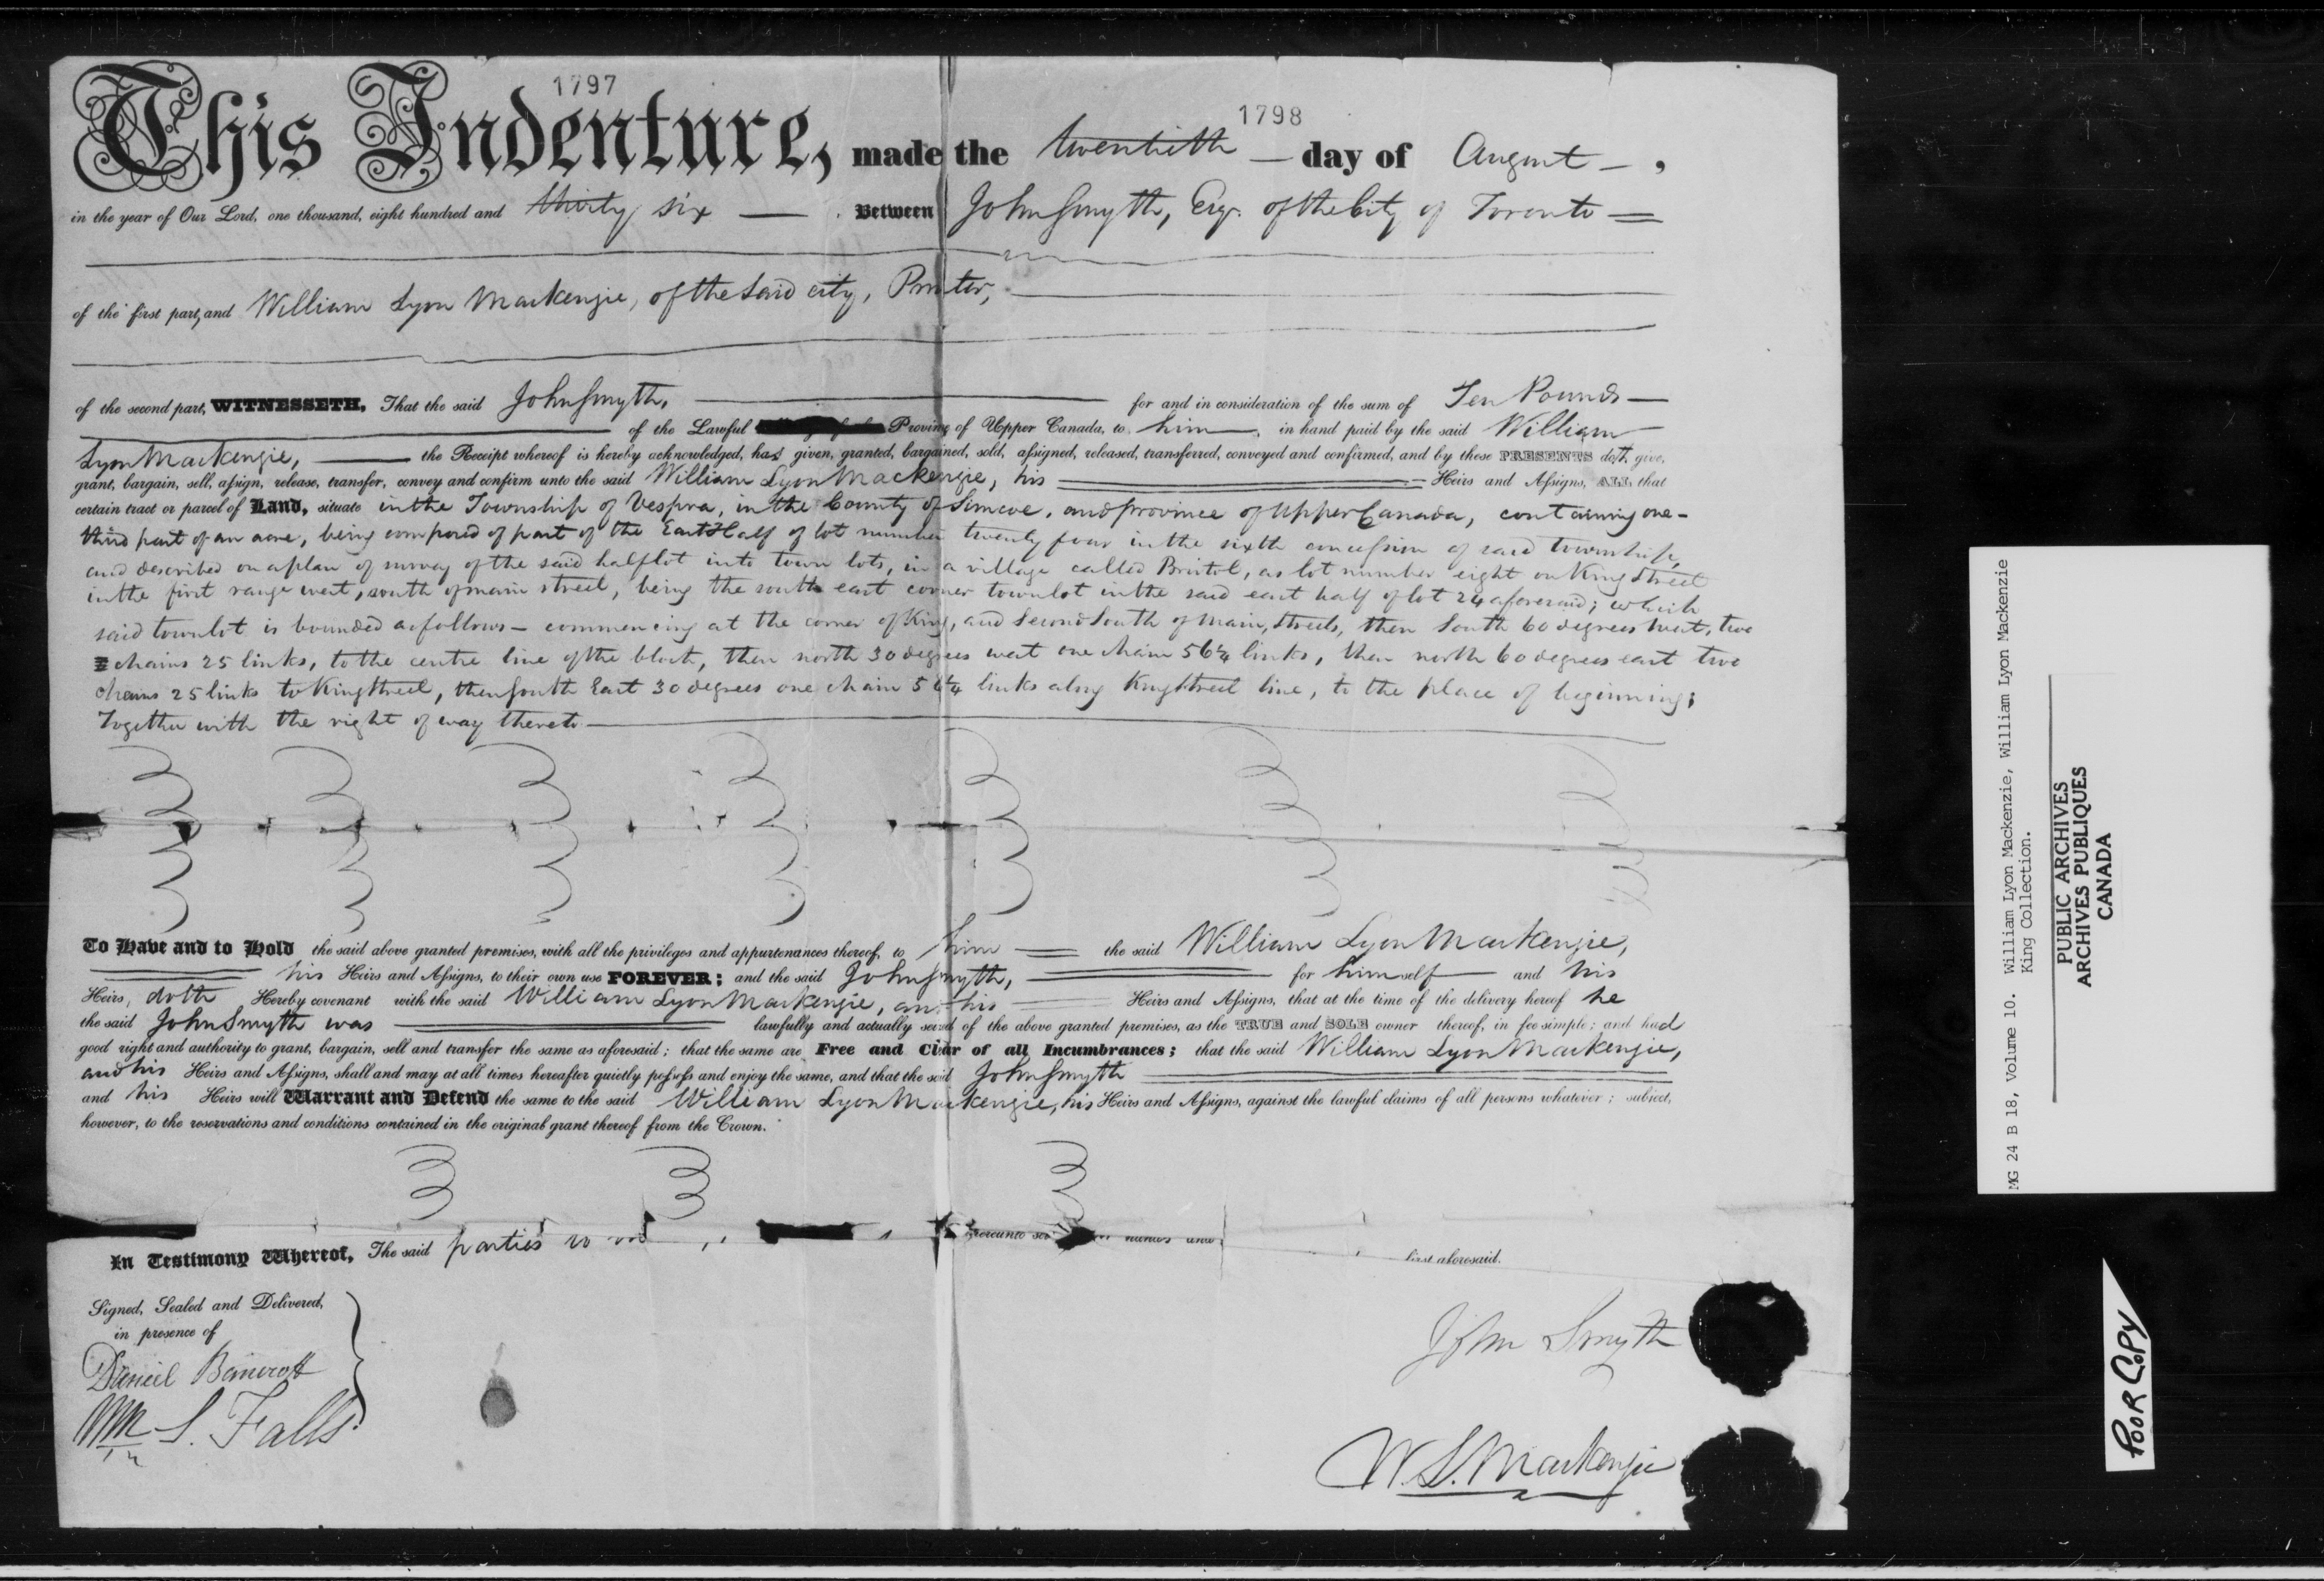 1797
1798
This Indenture, made the twentieth day of August,
in the year of Our Lord, one thousand, eight hundred and thirty six Between John Smyth, Esqr. of the City of Toronto
of the first part, and William Lyon Mackenzie, of the said city, Printer,
of the second part, WITNESSETH, That the said John Smyth, for and in consideration of the sum of Ten Pounds
of the Lawful Province of Upper Canada, to him in hand paid by the said William
Lyon Mackenzie, the Receipt whereof is hereby acknowledged, has given, granted, bargained, sold, assigned, released, transferred, conveyed and confirmed, and by these PRESENTS doth give,
grant, bargain, sell, assign, release, transfer, convey and confirm unto the said William Lyon Mackenzie, his Heirs and Assigns, ALL that
certain tract or parcel of Land, situate in the Township of Vespra, in the County of Simcoe, and province of Upper Canada, containing one-
third part of an acre, being composed of part of the East Half of lot number twenty four in the sixth concession of said township,
and described on a plan of survey of the said half lot into town lots, in a village called Bristol, as lot number eight on King Street
in the first range west, south of main street, being the south east corner town lot in the said east half of lot 24 aforesaid; which
said town lot is bounded as follows - commencing at the corner of King, and Second South of Main, Streets, then South 60 degrees West, two
chains 25 links, to the centre line of the block, then north 30 degrees west one chain 56¼ links, then north 60 degrees east two
chains 25 links to King Street, then South East 30 degrees one chain 56¼ links along King Street line, to the place of beginning;
Together with the right of way thereto
To Have and to Hold the said above granted premises, with all the privileges and appurtenances thereof, to him the said William Lyon Mackenzie,
his Heirs and Assigns, to their own use FOREVER; and the said John Smyth, for himself and his
Heirs, doth Hereby covenant with the said William Lyon Mackenzie, and his Heirs and Assigns, that at the time of the delivery hereof he
the said John Smyth was lawfully and actually seized of the above granted premises, as the TRUE and SOLE owner thereof, in fee simple; and had
good right and authority to grant, bargain, sell and transfer the same as aforesaid; that the same are Free and Clear of all Incumbrances; that the said William Lyon Mackenzie,
and his Heirs and Assigns, shall and may at all times hereafter quietly possess and enjoy the same, and that the said John Smyth
and his Heirs will Warrant and Defend the same to the said William Lyon Mackenzie, his Heirs and Assigns, against the lawful claims of all persons whatever; subject,
however, to the reservations and conditions contained in the original grant thereof from the Crown.
In Testimony Whereof, The said parties hereunto hands and first aforesaid.
Signed, Sealed and Delivered,
in presence of
Daniel Bancroft
Wm S. Falls
John Smyth
W. L. Mackenzie
MG 24 B 18, Volume 10. William Lyon Mackenzie, William Lyon Mackenzie
King Collection.
PUBLIC ARCHIVES
ARCHIVES PUBLIQUES
CANADA
POOR COPY